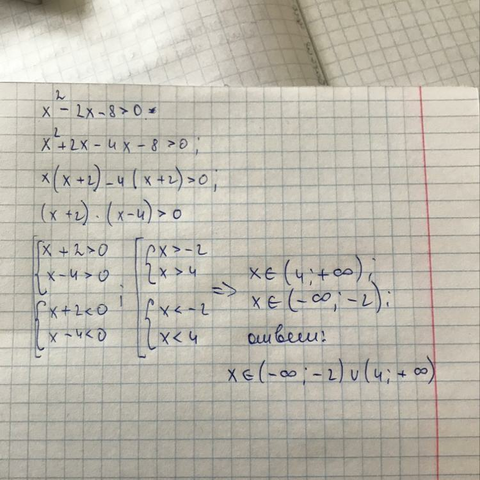 x² - 2x - 8 > 0
x² + 2x - 4x - 8 > 0;
x(x+2) - 4(x+2) > 0;
(x+2) · (x-4) > 0
[ { x + 2 > 0
x - 4 > 0
{ x + 2 < 0
x - 4 < 0 ;
[ { x > -2
x > 4
{ x < -2
x < 4
=> x ∈ (4; +∞);
x ∈ (-∞; -2);
ответ:
x ∈ (-∞; -2) ∪ (4; +∞)